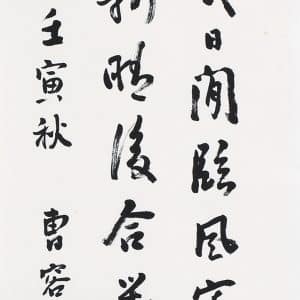 日閒臨風
新晴後合
壬寅秋 曹容